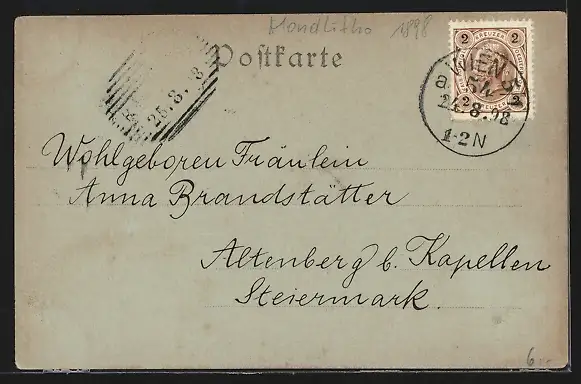 Mondlitho 1898
Postkarte
25.8.98
2 KREUZER 2
2 2
WIEN
24.8.98
1-2N
Wohlgeboren Fräulein
Anna Brandstätter
Altenberg b. Kapellen
Steiermark.